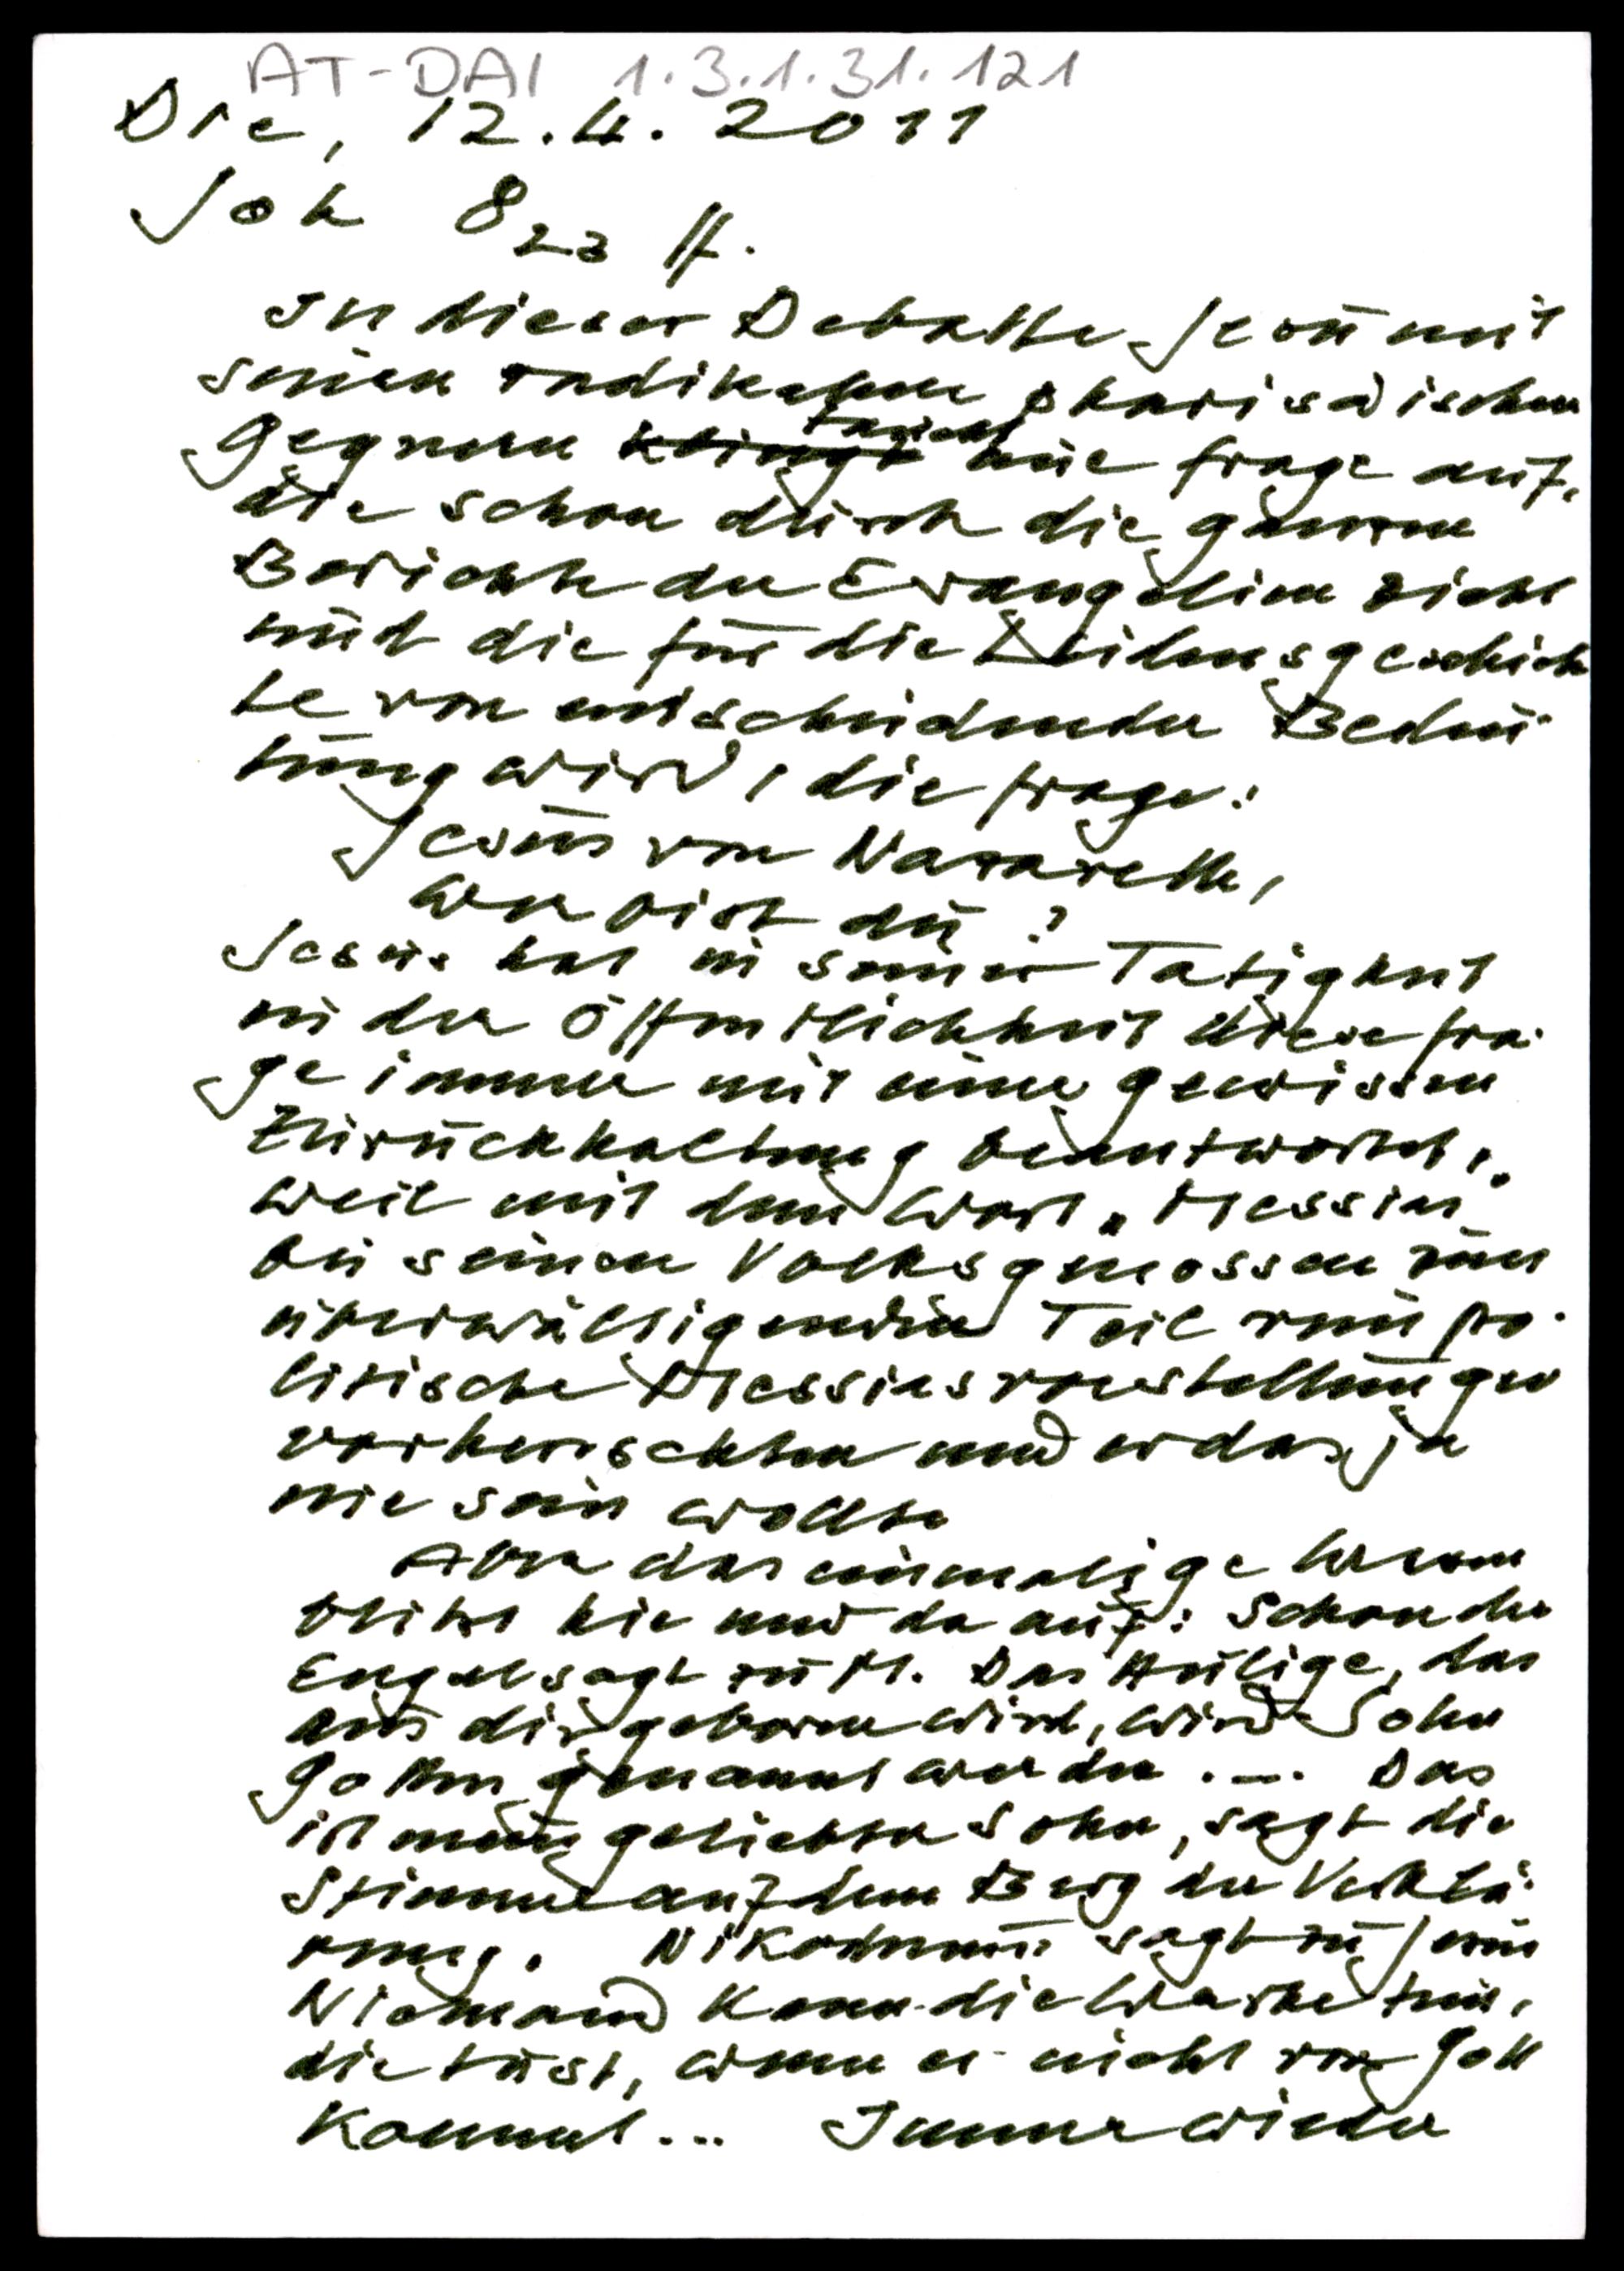 AT-DAI 1.3.1.31.121
Die, 12.4.2011
Joh 8 23 ff.
In dieser Debatte Jesu mit
seinen radikalen pharisäischen
Gegnern klingt taucht eine Frage auf,
die schon durch die ganzen
Berichte der Evangelien zieht
und die für die Leidensgeschich
te von entscheidender Bedeu-
tung wird, die Frage:
Jesus von Nazareth,
wer bist du?
Jesus hat in seiner Tätigkeit
in der Öffentlichkeit diese Fra-
ge immer mit einer gewissen
Zurückhaltung beantwortet,
weil mit dem Wort „Messias"
bei seinen Volksgenossen zum
überwältigenden Teil rein po-
litische Messiasvorstellungen
vorherrschten und er das ja
nie sein wollte
Aber das einmalige Wesen
blitzt hie und da auf: Schon der
Engel sagt zu M. Das Heilige, das
aus dir geboren wird, wird Sohn
Gottes genannt werden .–. Das
ist mein geliebter Sohn, sagt die
Stimme auf dem Berg der Verklä-
rung. Nikodemus sagt zu Jesus
Niemand kann die Werke tun,
die tust, wenn er nicht von Gott
kommt... Immer wieder